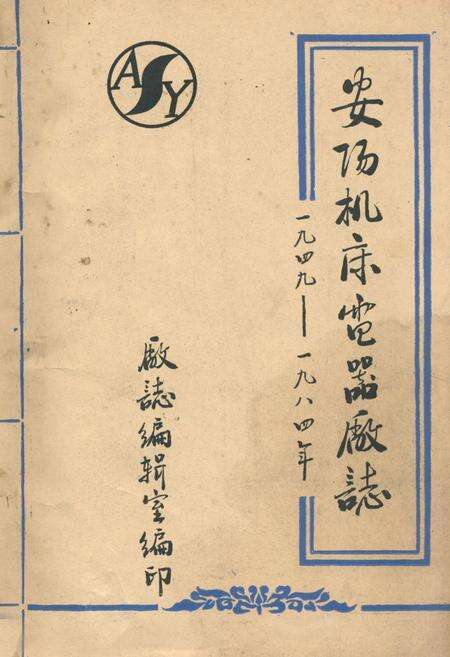 ASY
安阳机床電器廠誌
一九四九——一九八四年
廠誌编辑室编印